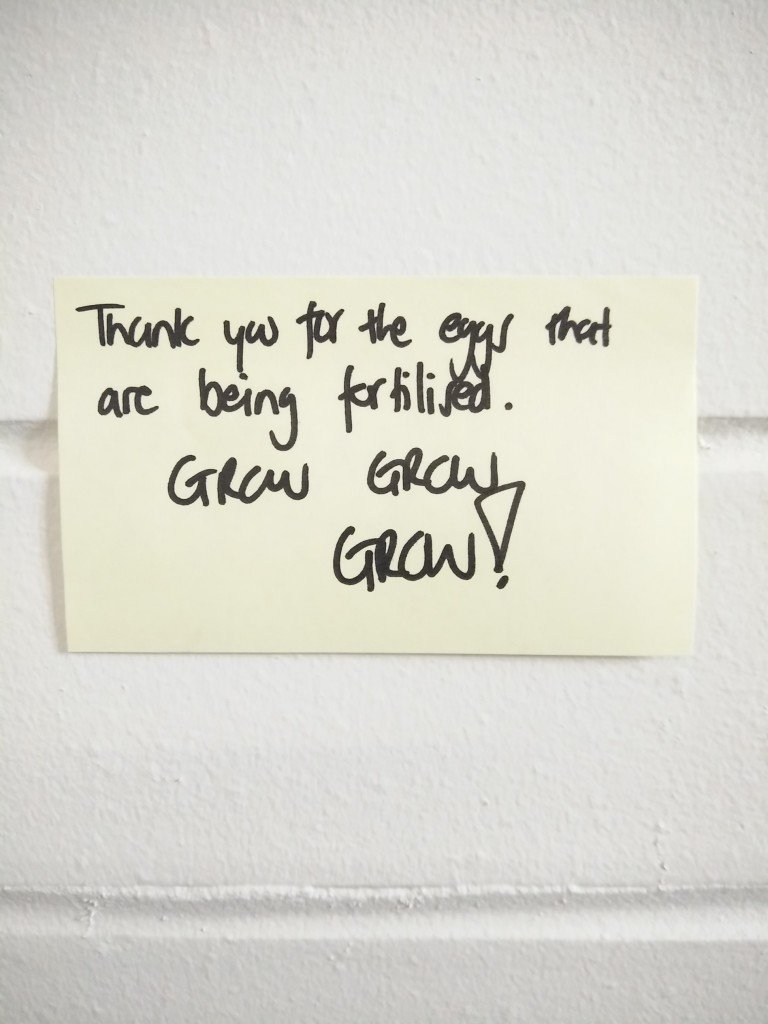 Thank you for the eggs that
are being fertilised.
GROW GROW
GROW!